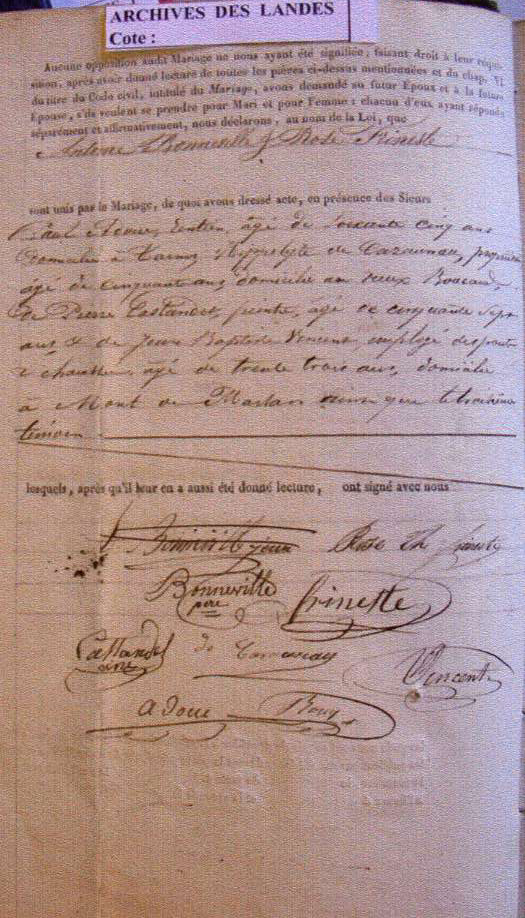 ARCHIVES DES LANDES
Cote :
Aucune opposition audit Mariage ne nous ayant été signifiée; faisant droit à leur réqui-
sition, après avoir donné lecture de toutes les pièces ci-dessus mentionnées et du chap. VI
du titre du Code civil, intitulé du Mariage, avons demandé au futur Époux et à la future
Épouse, s'ils veulent se prendre pour Mari et pour Femme : chacun d'eux ayant répondu
séparément et affirmativement, nous déclarons, au nom de la Loi, que
Antoine Bonneville & Rose
sont unis par le Mariage, de quoi avons dressé acte, en présence des Sieurs
Paul âgé de soixante cinq ans
domicilié à Tarnos, Hyppolyte de
âgé de cinquante ans domicilié au vieux Boucau,
de Pierre Castandet, peintre, âgé de cinquante sept
ans & de Jean Baptiste Vincent, employé des ponts
& chaussées, âgé de trente trois ans, domicilié
à Mont de Marsan ainsi que le troisième
témoin
lesquels, après qu'il leur en a aussi été donné lecture, ont signé avec nous
Rose
Bonneville
père
Castandet
ainé
de
Vincent